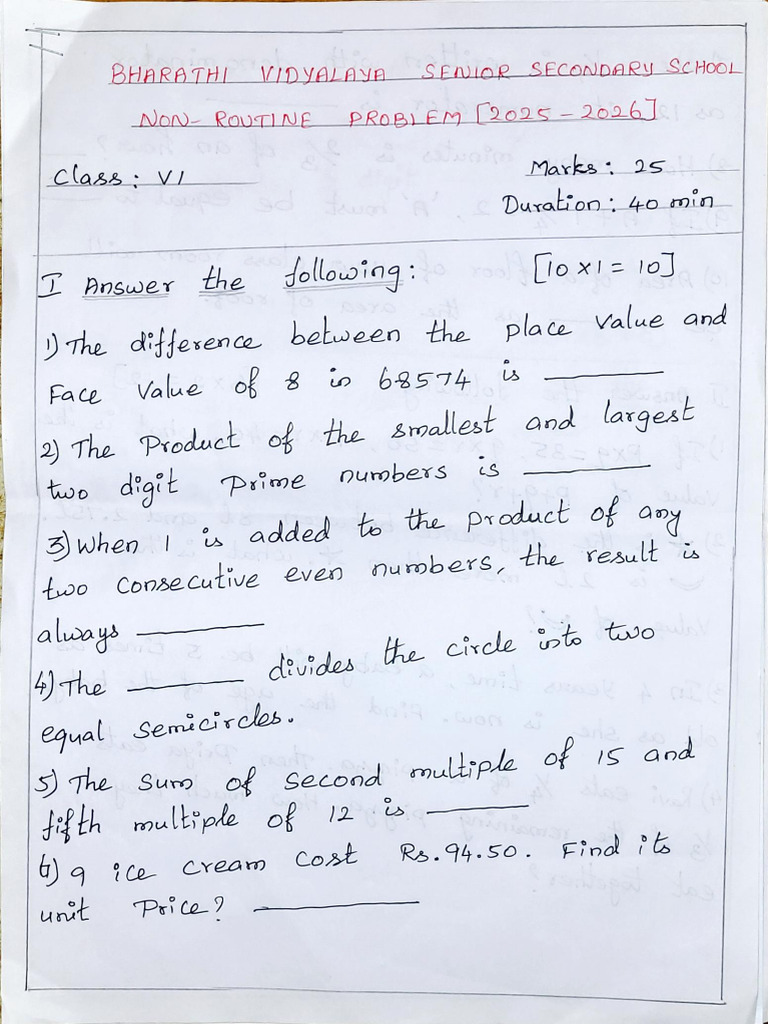 BHARATHI VIDYALAYA SENIOR SECONDARY SCHOOL
NON-ROUTINE PROBLEM [2025-2026]
Class: VI
Marks: 25
Duration: 40 min
I Answer the following: [10x1=10]
1) The difference between the place value and
Face value of 8 in 68574 is ________
2) The Product of the smallest and largest
two digit Prime numbers is ________
3) When 1 is added to the product of any
two consecutive even numbers, the result is
always ________
4) The ________ divides the circle into two
equal semicircles.
5) The sum of second multiple of 15 and
fifth multiple of 12 is ________
6) 9 ice cream cost Rs.94.50. Find its
unit Price? ________